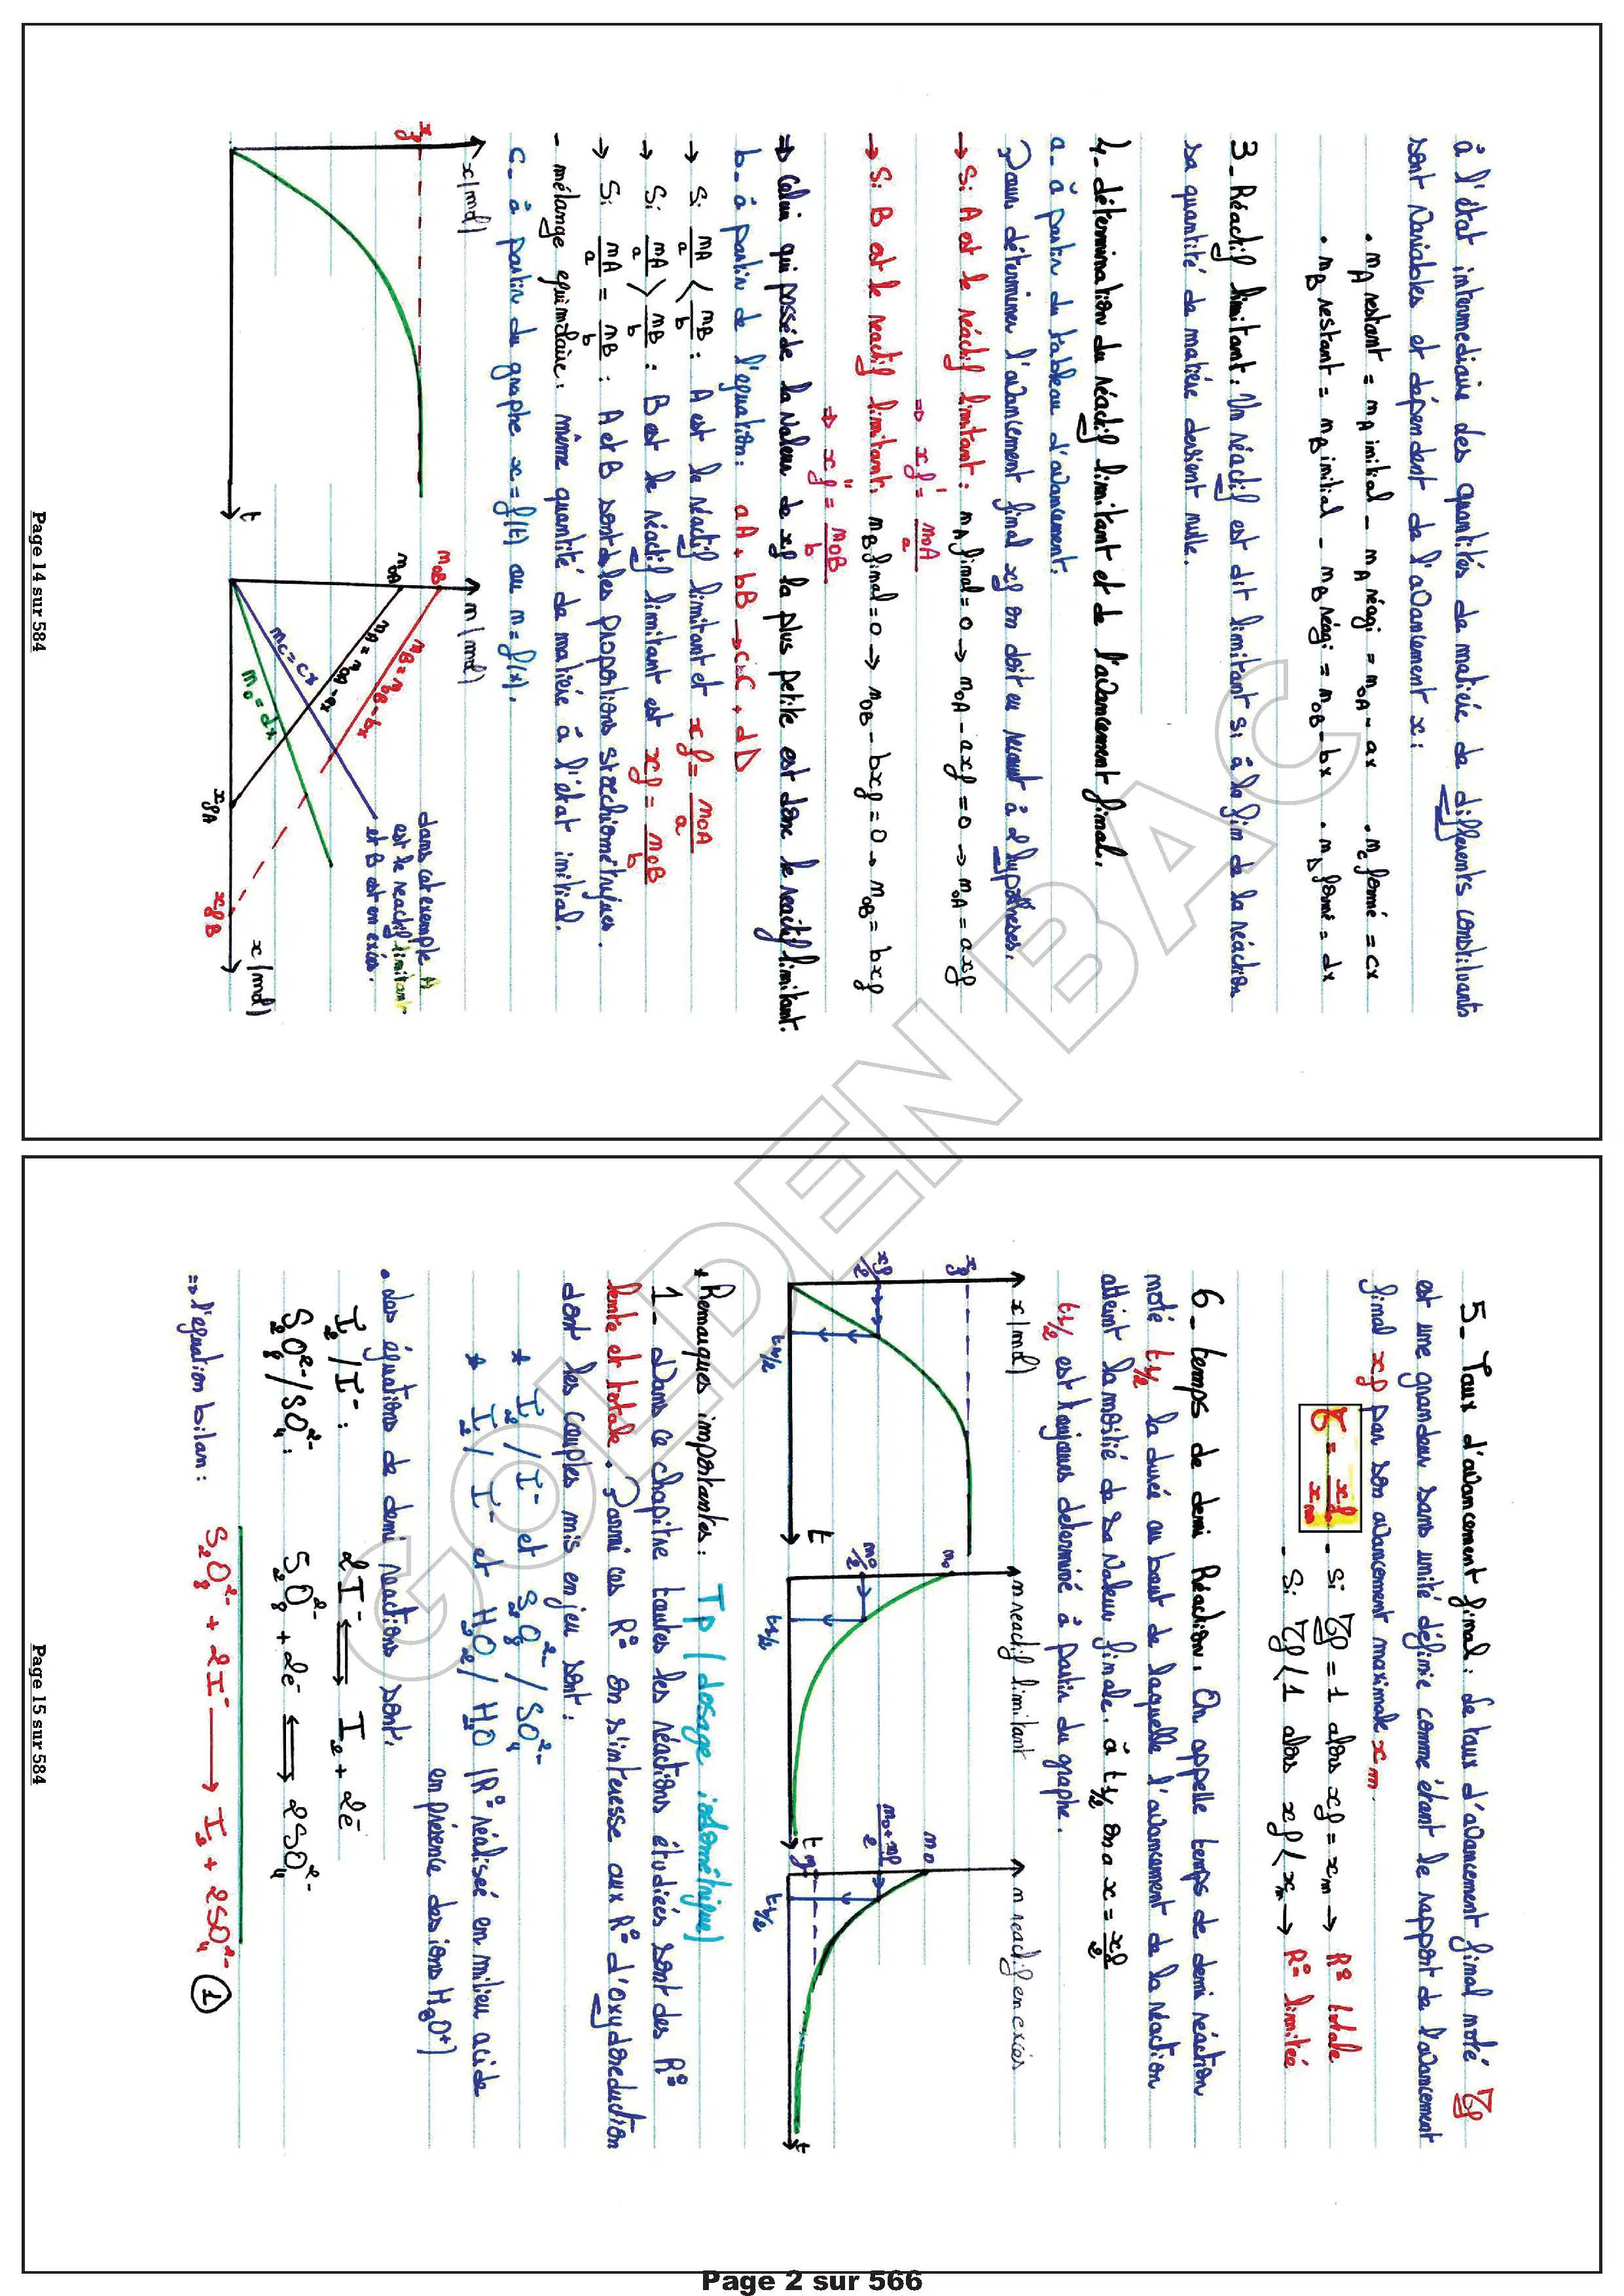 à l'état intermediaire des quantités de matière de différents constituants
sont variables et dépendent de l'avancement x:
• nA restant = nA initial - nA réagi = n0A - ax • nC formé = cx
• nB restant = nB initial - nB réagi = n0B - bx • nD formé = dx
3- Réactif limitant: Un réactif est dit limitant si à la fin de la réaction
sa quantité de matière devient nulle.
4- détermination du réactif limitant et de l'avancement final.
a- à partir du tableau d'avancement.
Pour déterminer l'avancement final xf on doit en recourt à 2 hypothèses.
→ Si A est le réactif limitant: nA final = 0 → n0A - axf = 0 → n0A = axf
⇒ x'f = n0A/a
→ Si B est le reactif limitant: nB final = 0 → n0B - bxf = 0 → n0B = bxf
⇒ x''f = n0B/b
⇒ Celui qui posséde la valeur de xf la plus petite est donc le reactif limitant.
b- à partir de l'equation: aA + bB → cC + dD
→ Si nA/a < nB/b : A est le réactif limitant et xf = n0A/a
→ Si nA/a > nB/b : B est le réactif limitant est xf = n0B/b
→ Si nA/a = nB/b : A et B sont dans les proportions stœchiométriques.
- mélange equimolaire: même quantité de matière à l'état initial.
c- à partir du graphe x = f(t) ou n = f(x).
x(mol)
xf
t
n(mol)
n0B
n0A
nB = n0B - bx
nA = n0A - ax
nC = cx
nD = dx
xfA
xfB
x(mol)
dans cet exemple A
est le reactif limitant
et B est en excés.
Page 14 sur 584
5- Taux d'avancement final: Le taux d'avancement final noté τf
est une grandeur sans unité définie comme étant le rapport de l'avancement
final xf par son avancement maximale xm.
τ = xf/xm
- Si τf = 1 alors xf = xm → R° totale
- Si τf < 1 alors xf < xm → R° limitée
6- temps de demi Réaction. On appelle temps de demi réaction
noté t1/2 la durée au bout de laquelle l'avancement de la réaction
atteint la moitié de sa valeur finale. à t1/2 on a x = xf/2
t1/2 est toujours determiné à partir du graphe.
x(mol)
xf
xf/2
t1/2
t
n reactif limitant
n0
n0/2
t1/2
t
n reactif en excés
n0
n0+nf/2
nf
t1/2
t
* Remarques importantes: TP (dosage iodométrique)
1- Dans ce chapitre toutes les réactions étudiées sont des R°
lente et totale. Parmi ces R° on s'interesse aux R° d'oxydoreduction
dont les couples mis en jeu sont:
* I2/I- et S2O8 2-/SO4 2-
* I2/I- et H2O2/H2O (R° réalisée en milieu acide
en présence des ions H3O+)
• Les équations de demi reactions sont.
I2/I- : 2I- ⇌ I2 + 2e-
S2O8 2-/SO4 2- : S2O8 2- + 2e- ⇌ 2SO4 2-
⇒ l'equation bilan: S2O8 2- + 2I- → I2 + 2SO4 2- (1)
Page 15 sur 584
GOLDEN BAC
Page 2 sur 566